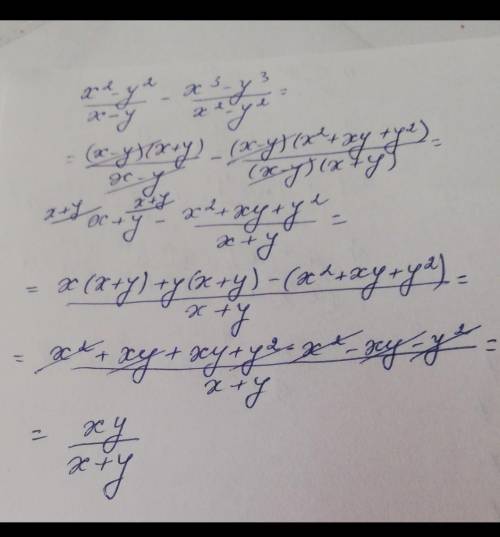 x²-y²/x-y - x³-y³/x²-y² =
= (x-y)(x+y)/x-y - (x-y)(x²+xy+y²)/(x-y)(x+y) =
x+y/ x+y x+y/ - x²+xy+y²/x+y =
= x(x+y)+y(x+y)-(x²+xy+y²)/x+y =
= x²+xy+xy+y²-x²-xy-y²/x+y =
= xy/x+y